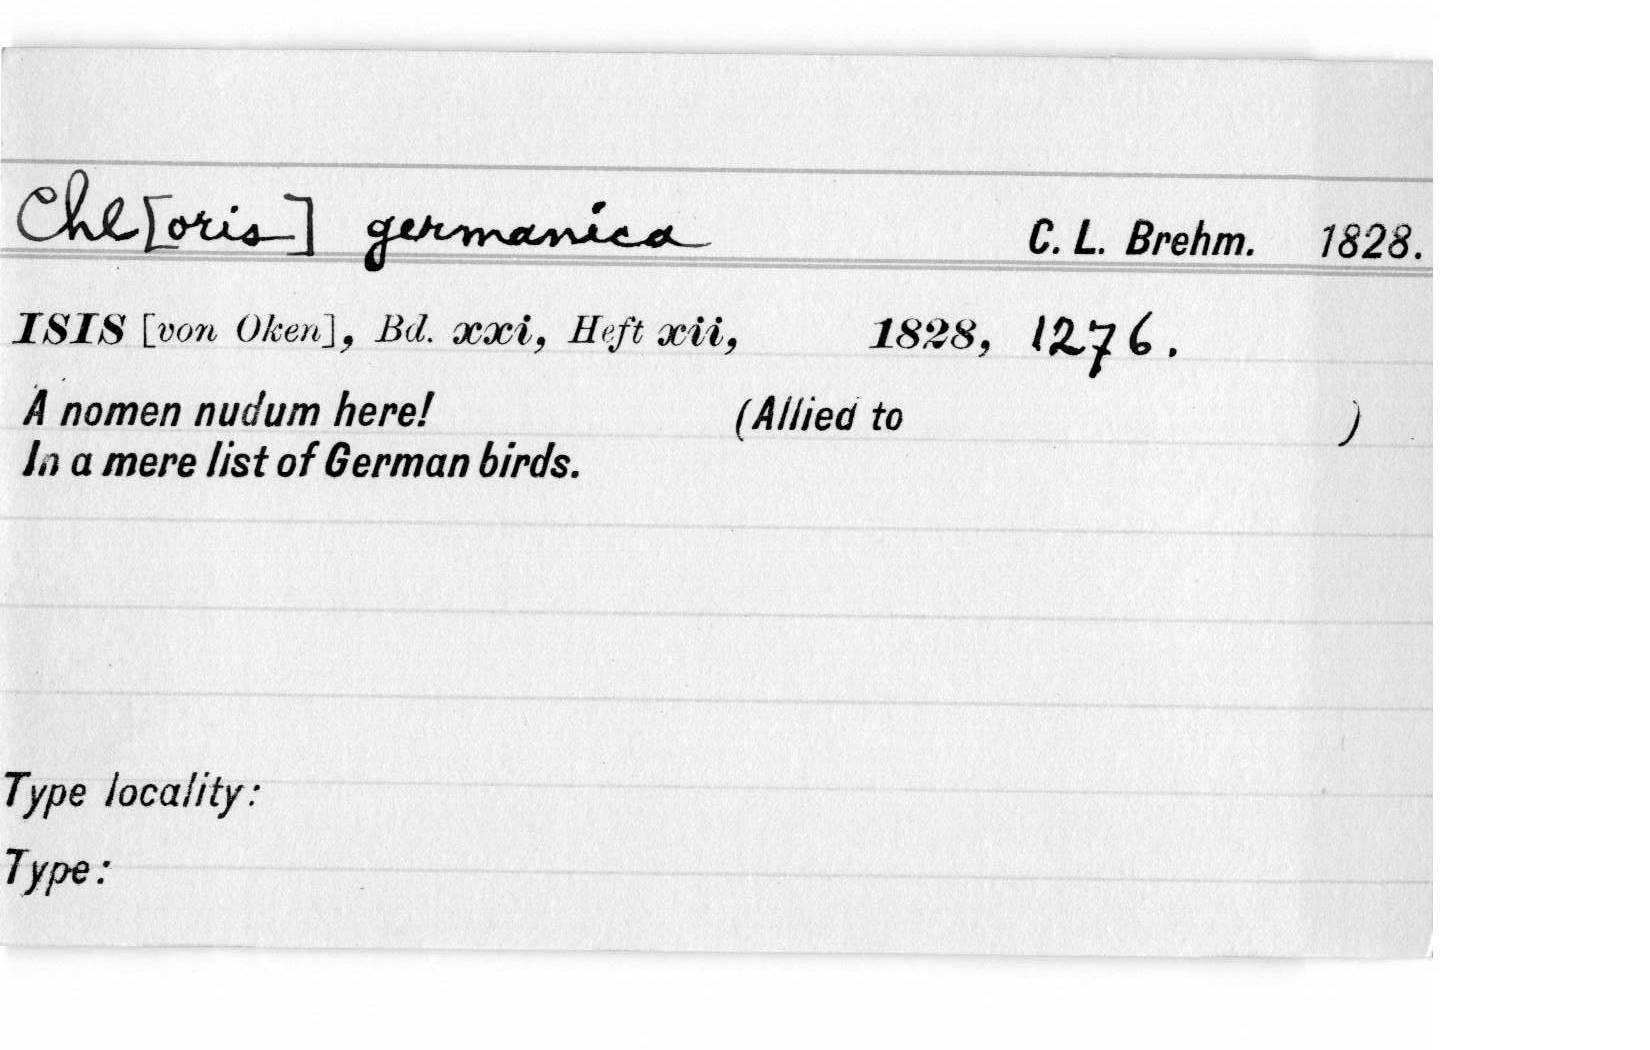 Chl[oris] germanica C. L. Brehm. 1828.
ISIS [von Oken], Bd. xxi, Heft xii, 1828, 1276.
A nomen nudum here! (Allied to )
In a mere list of German birds.
Type locality:
Type: